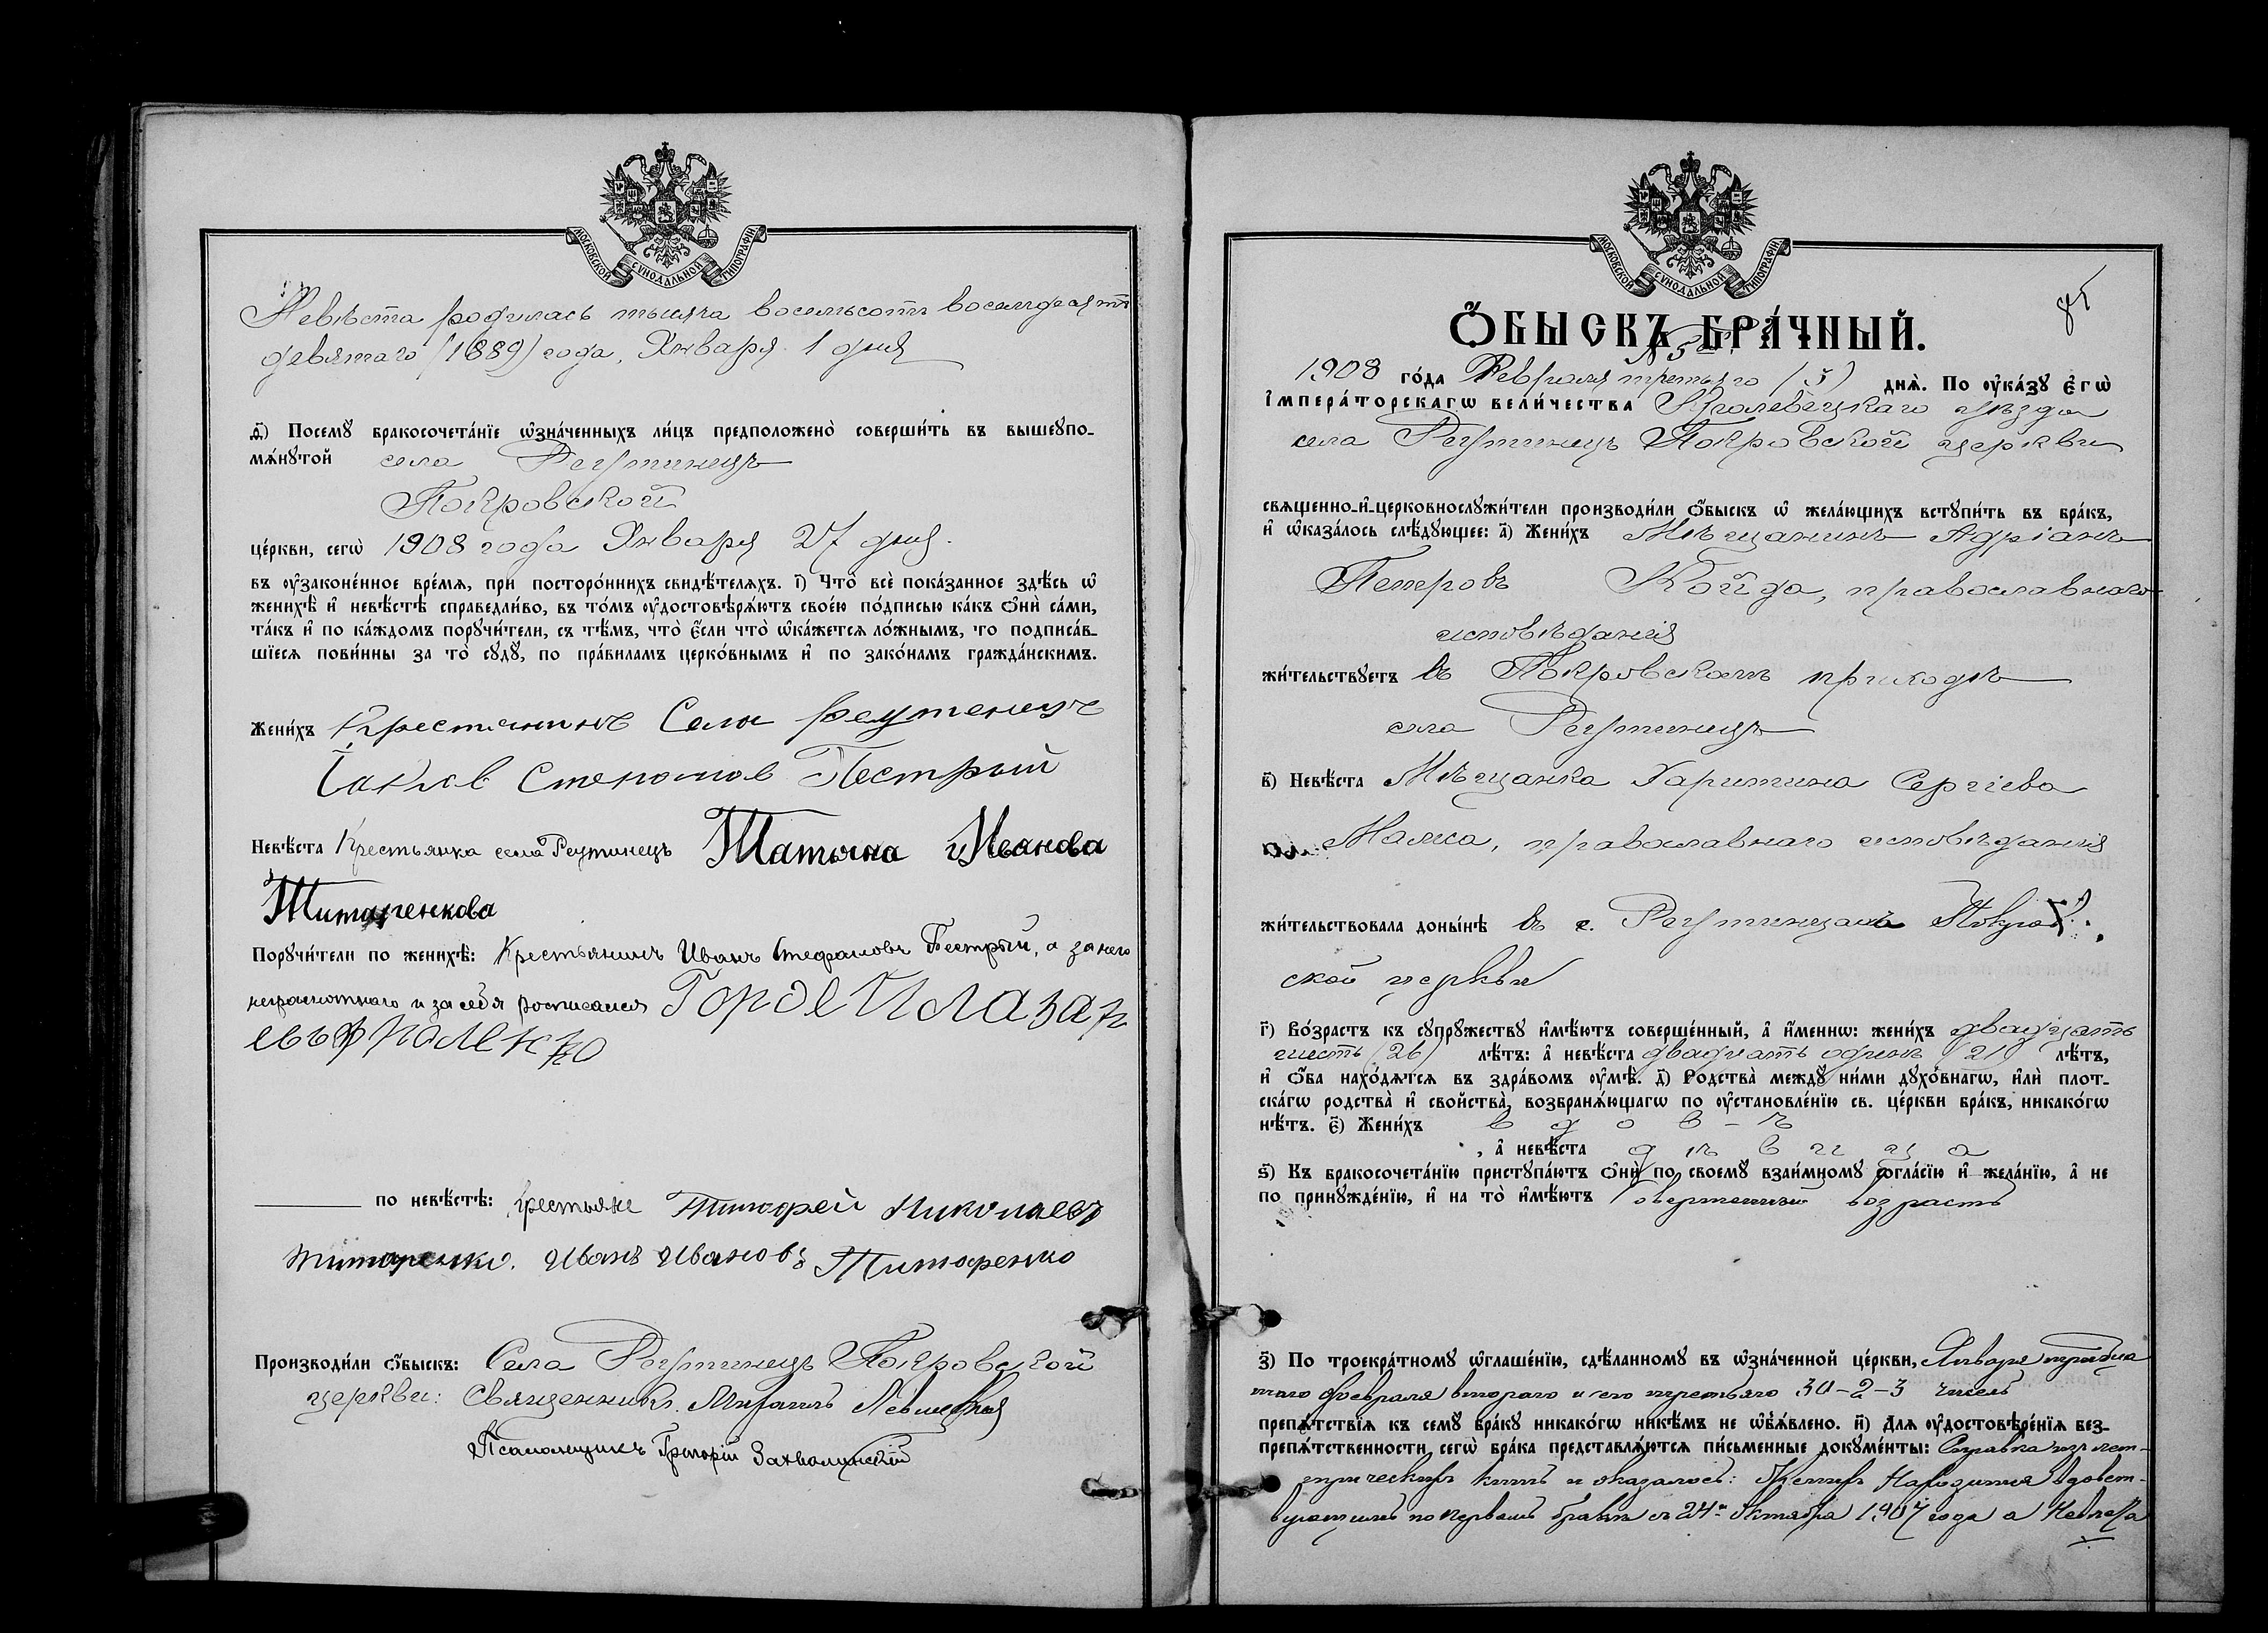 МОСКОВСКОЙ СѴНОДАЛЬНОЙ ТИПОГРАФІИ
Невѣста родилась тысяча восемьсотъ восемдесятъ
девятаго (1889) года, Января 1 дня
д҃і) Посемꙋ̀ бракосочета́нїе ѡ҆зна́ченныхъ ли́цъ предположено̀ соверши́ть въ вышеꙋпо-
мѧ́нꙋтой села Реутинецъ
Покровской
це́ркви, сегѡ̀ 1908 года Января 27 дня.
въ ᲂу҆законе́нное вре́мѧ, при посторо́ннихъ свидѣ́телѧхъ. і҃) Что̀ всѐ пока́занное здѣ́сь ѡ҆
женихѣ̀ и҆ невѣ́стѣ справедли́во, въ то́мъ ᲂу҆достовѣрѧ́ютъ свое́ю по́дписью ка́къ ѻ҆нѝ са́ми,
та́къ и҆ по ка́ждомъ порꙋчи́тели, съ тѣ́мъ, что̀ є҆́сли что̀ ѡ҆ка́жетсѧ ло́жнымъ, то подписа́в-
шїесѧ пови́нны за то̀ сꙋдꙋ̀, по пра́виламъ церко́внымъ и҆ по зако́намъ гражда́нскимъ.
Жени́хъ Крестянинъ Села Реутенецъ
Іаковъ Степановъ Пестрый
Невѣ́ста Крестьянка села Реутинецъ Татьяна Иванова
Титаренкова
Порꙋчи́тели по женихѣ̀: Крестьянинъ Иванъ Стефановъ Пестрый, а за него
неграмотнаго и за себя росписался Горде И Лазар
евъ
по невѣ́стѣ: Крестьяне Тимофей Николаевъ
Титаренко. Иванъ Ивановъ Титаренко
Производи́ли ѻ҆́быскъ: Села Реутинецъ Покровской
церкви: Священникъ Левицкій
Псаломщикъ Григорій
МОСКОВСКОЙ СѴНОДАЛЬНОЙ ТИПОГРАФІИ
85
Ѻ҆́БЫСКЪ БРА́ЧНЫЙ.
№ 5
1908 го́да Февраля третьяго (3) днѧ̀. По ᲂу҆ка́зꙋ є҆гѡ̀
і҆мпера́торскагѡ вели́чества Кролевецкаго уѣзда
села Реутинецъ Покровской церкви
свѧщенно-и҆-церковнослꙋжи́тели производи́ли ѻ҆́быскъ ѡ҆ жела́ющихъ встꙋпи́ть въ бра́къ,
и҆ ѡ҆каза́лось слѣ́дꙋющее: а҃) Жени́хъ Мѣщанинъ Адріанъ
Петровъ Койда, православнаго
исповѣданія
жи́тельствꙋетъ въ Покровскомъ приходѣ
села Реутинецъ
в҃) Невѣ́ста Мѣщанка Харитина Сергіева
православнаго исповѣданія
жи́тельствовала доны́нѣ въ с. Реутинцахъ Покров
ской церкви
г҃) Во́зрастъ къ сꙋпрꙋ́жествꙋ и҆мѣ́ютъ соверше́нный, а҆ и҆́меннѡ: жени́хъ двадцать
шесть (26) лѣ́тъ: а҆ невѣ́ста двадцать одинъ (21) лѣ́тъ,
и҆ ѻ҆́ба нахо́дѧтсѧ въ здра́вомъ ᲂу҆мѣ̀. д҃) Родства̀ междꙋ̀ ни́ми дꙋхо́внагѡ, и҆лѝ плот-
ска́гѡ родства̀ и҆ сво́йства̀, возбранѧ́ющагѡ по ᲂу҆становле́нїю св. це́ркви бра́къ, никако́гѡ
нѣ́тъ. є҃) Жени́хъ в д о в - ъ
, а҆ невѣ́ста д ѣ в и ц а
ѕ҃) Къ бракосочета́нїю пристꙋпа́ютъ ѻ҆нѝ по своемꙋ̀ взаи́мномꙋ согла́сїю и҆ жела́нїю, а҆ не
по принꙋжде́нїю, и҆ на то̀ и҆мѣ́ютъ совершенный возрастъ
з҃) По троекра́тномꙋ ѡ҆глаше́нїю, сдѣ́ланномꙋ въ ѡ҆зна́ченной це́ркви, Января тридца
таго февраля второго и его третьяго 30-2-3 чиселъ
препѧ́тствїѧ къ семꙋ̀ бра́кꙋ никако́гѡ никѣ́мъ не ѡ҆б̾ѧ́влено. и҃) Длѧ ᲂу҆достовѣре́нїѧ без-
препѧ́тственности сегѡ̀ бра́ка представлѧ́ютсѧ пи́сьменные докꙋме́нты: Справка изъ мет-
рическихъ книгъ и оказалось: Женихъ находится вдовст-
вующимъ по первомъ бракѣ съ 24го Октября 1907 года а Невѣста